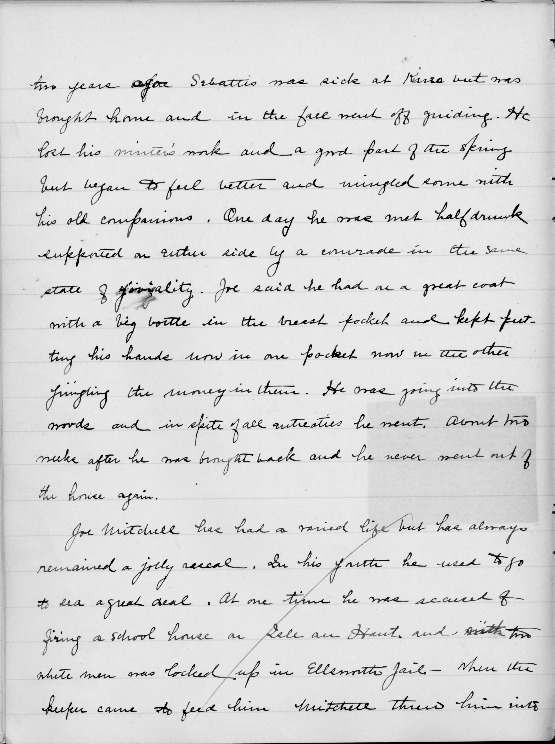 two years ago Sebattis was sick at Kineo but was
brought home and in the fall went off guiding. He
lost his winter's work and a good part of the spring
but began to feel better and mingled some with
his old companions. One day he was met half drunk
supported on either side by a comrade in the same
state of joviality. Joe said he had on a great coat
with a big bottle in the breast pocket and kept put-
ting his hands now in one pocket now in the other
jingling the money in them. He was going into the
woods and in spite of all entreaties he went. About two
weeks after he was brought back and he never went out of
the house again.
Joe Mitchell has had a varied life but has always
remained a jolly rascal. In his youth he used to go
to sea a great deal. At one time he was accused of
firing a school house on Isle au Haut. and with two
white men was locked up in Ellsworth Jail - When the
keeper came to feed him Mitchell threw him into